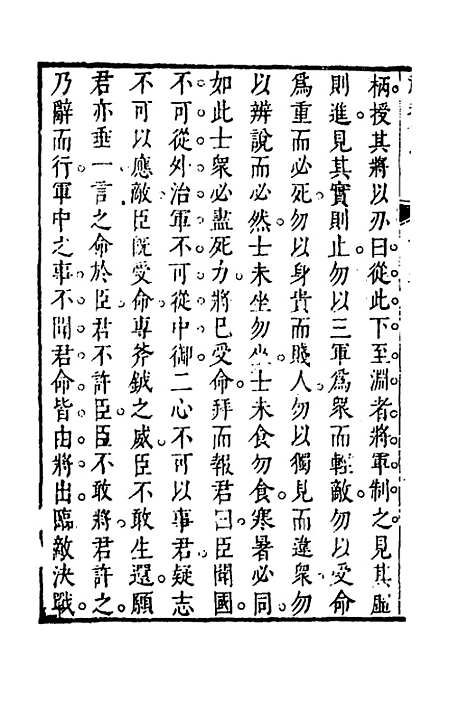 柄授其將以刃曰從此下至淵者將軍制之見其虛
則進見其實則止勿以三軍爲衆而輕敵勿以受命
爲重而必死勿以身貴而賤人勿以獨見而違衆勿
以辨說而必然士未坐勿坐士未食勿食寒暑必同
如此士衆必盡死力將已受命拜而報君曰臣聞國
不可從外治軍不可從中御二心不可以事君疑志
不可以應敵臣既受命專斧鉞之威臣不敢生還願
君亦垂一言之命於臣君不許臣臣不敢將君許之
乃辭而行軍中之事不聞君命皆由將出臨敵決戰